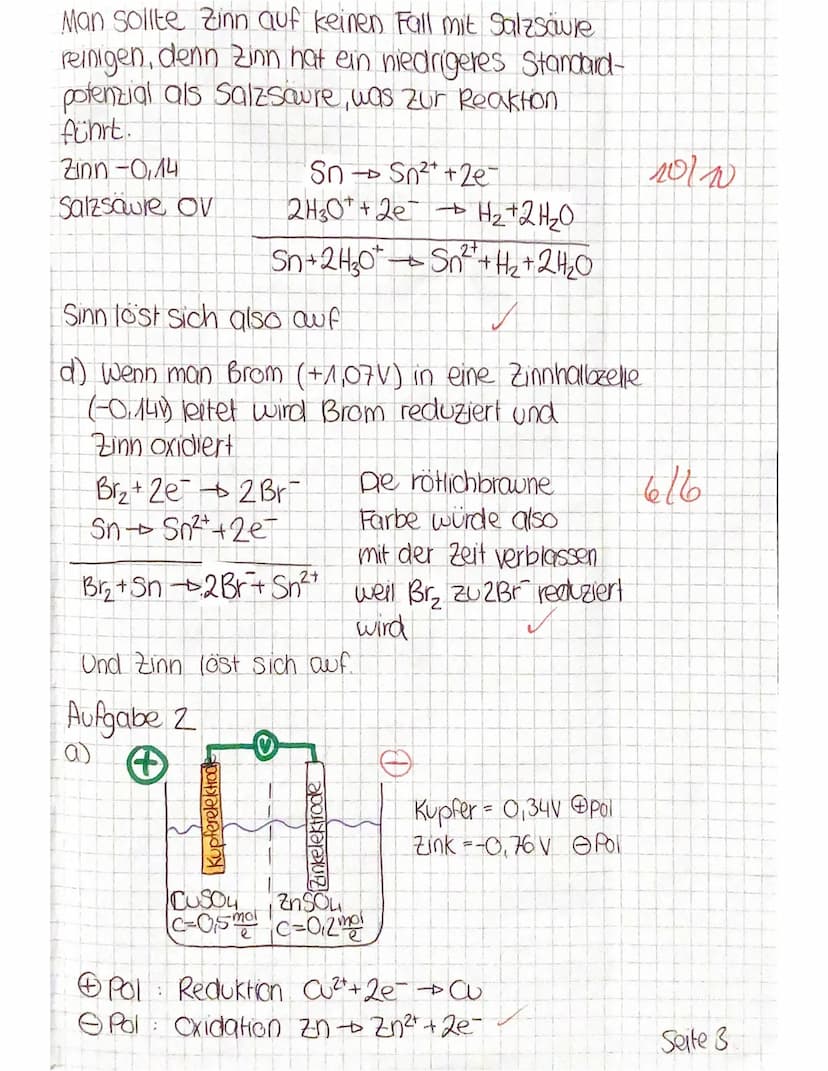 Man sollte Zinn auf keinen Fall mit Salzsäure
reinigen, denn Zinn hat ein niedrigeres Standard-
potenzial als Salzsäure, was zur Reaktion
führt.
Zinn -0,14
Sn → Sn²⁺ + 2e⁻
10/10
Salzsäure 0V
2H₃O⁺ + 2e⁻ → H₂+2H₂O
Sn+2H₃O⁺ → Sn²⁺+H₂+2H₂O
Sinn löst sich also auf ✓
d) Wenn man Brom (+1,07V) in eine Zinnhalbzelle
(-0,14V) leitet wird Brom reduziert und
Zinn oxidiert
Br₂ + 2e⁻ → 2Br⁻
Sn → Sn²⁺ + 2e⁻
Br₂ + Sn → 2Br⁻ + Sn²⁺
De rötlichbraune
Farbe würde also
mit der Zeit verblassen
weil Br₂ zu 2Br⁻ reduziert
wird ✓
6/6
Und Zinn löst sich auf.
Aufgabe 2
a)
+
V
−
Kupferelektrode
Zinkelektrode
CuSO₄
c=0,5 mol/l
ZnSO₄
c=0,2 mol/l
Kupfer = 0,34V ⊕Pol
Zink = -0,76V ⊖Pol
⊕ Pol : Reduktion Cu²⁺ + 2e⁻ → Cu
⊖ Pol : Oxidation Zn → Zn²⁺ + 2e⁻ ✓
Seite 3